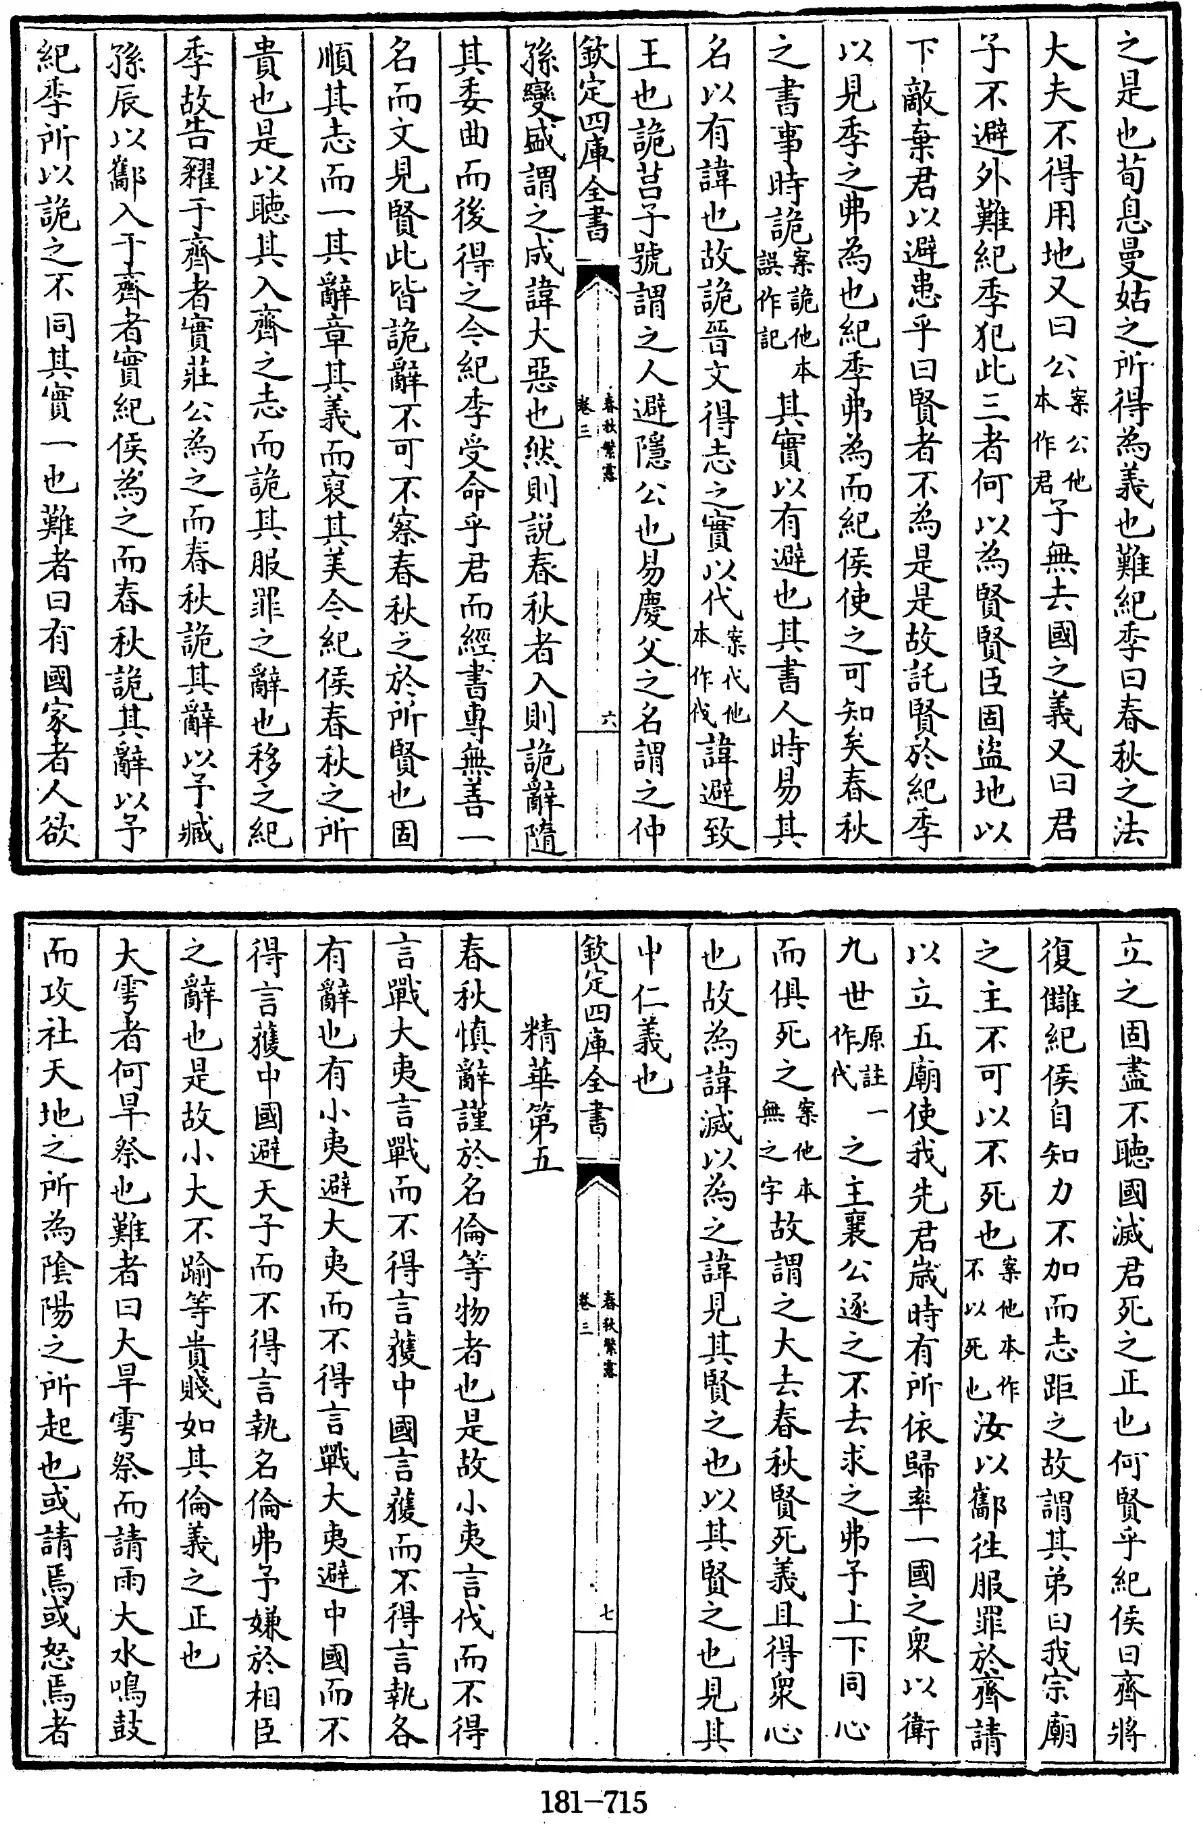 之是也荀息曼姑之所得為義也難紀季曰春秋之法
大夫不得用地又曰公案公他本作君子無去國之義又曰君
子不避外難紀季犯此三者何以為賢賢臣固盜地以
下敵棄君以避患乎曰賢者不為是是故託賢於紀季
以見季之弗為也紀季弗為而紀侯使之可知矣春秋
之書事時詭案詭他本誤作記其實以有避也其書人時易其
名以有諱也故詭晉文得志之實以代案代他本作伐諱避致
王也詭莒子號謂之人避隱公也易慶父之名謂之仲
欽定四庫全書
春秋繁露
卷三
六
孫變盛謂之成諱大惡也然則説春秋者入則詭辭隨
其委曲而後得之今紀季受命乎君而經書專無善一
名而文見賢此皆詭辭不可不察春秋之於所賢也固
順其志而一其辭章其義而裒其美今紀侯春秋之所
貴也是以聽其入齊之志而詭其服罪之辭也移之紀
季故告糴于齊者實莊公為之而春秋詭其辭以予臧
孫辰以酅入于齊者實紀侯為之而春秋詭其辭以予
紀季所以詭之不同其實一也難者曰有國家者人欲
立之固盡不聽國滅君死之正也何賢乎紀侯曰齊將
復讎紀侯自知力不加而志距之故謂其弟曰我宗廟
之主不可以不死也案他本作不以死也汝以酅往服罪於齊請
以立五廟使我先君歲時有所依歸率一國之衆以衛
九世原註一作代之主襄公逐之不去求之弗予上下同心
而俱死之案他本無之字故謂之大去春秋賢死義且得衆心
也故為諱滅以為之諱見其賢之也以其賢之也見其
中仁義也
欽定四庫全書
春秋繁露
卷三
七
精華第五
春秋慎辭謹於名倫等物者也是故小夷言伐而不得
言戰大夷言戰而不得言獲中國言獲而不得言執各
有辭也有小夷避大夷而不得言戰大夷避中國而不
得言獲中國避天子而不得言執名倫弗予嫌於相臣
之辭也是故小大不踰等貴賤如其倫義之正也
大雩者何旱祭也難者曰大旱雩祭而請雨大水鳴鼓
而攻社天地之所為陰陽之所起也或請焉或怒焉者
181-715